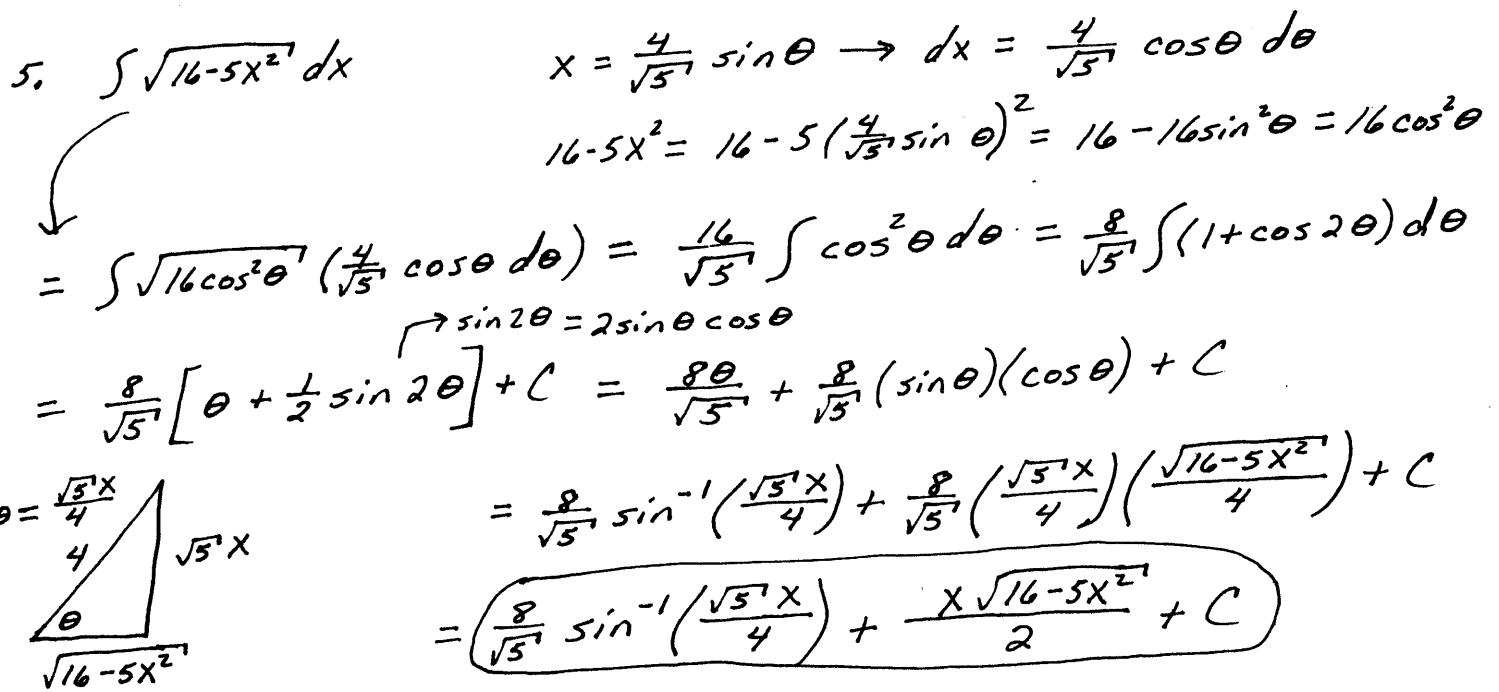 5. ∫√(16-5x²) dx    x = 4/√5 sinθ → dx = 4/√5 cosθ dθ
16-5x² = 16 - 5(4/√5 sin θ)² = 16 - 16sin²θ = 16cos²θ
= ∫√(16cos²θ) (4/√5 cosθ dθ) = 16/√5 ∫cos²θ dθ = 8/√5 ∫(1+cos2θ)dθ
→ sin2θ = 2sinθcosθ
= 8/√5 [θ + 1/2 sin2θ] + C = 8θ/√5 + 8/√5 (sinθ)(cosθ) + C
θ = √5x/4
= 8/√5 sin⁻¹(√5x/4) + 8/√5 (√5x/4)(√(16-5x²)/4) + C
4
√5x
θ
= 8/√5 sin⁻¹(√5x/4) + x√(16-5x²)/2 + C
√(16-5x²)